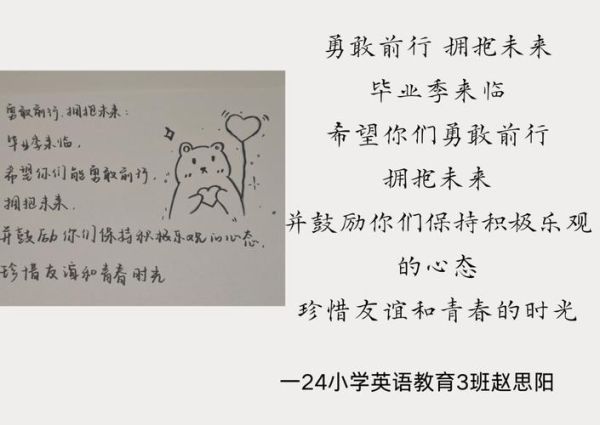 勇敢前行.拥抱未来:
毕业季来临.
希望你们能勇敢前行.
拥抱未来.
并鼓励你们保持积极乐观的心态.
珍惜友谊和青春时光
勇敢前行 拥抱未来
毕业季来临
希望你们勇敢前行
拥抱未来
并鼓励你们保持积极乐观
的心态
珍惜友谊和青春的时光
一24小学英语教育3班赵思阳